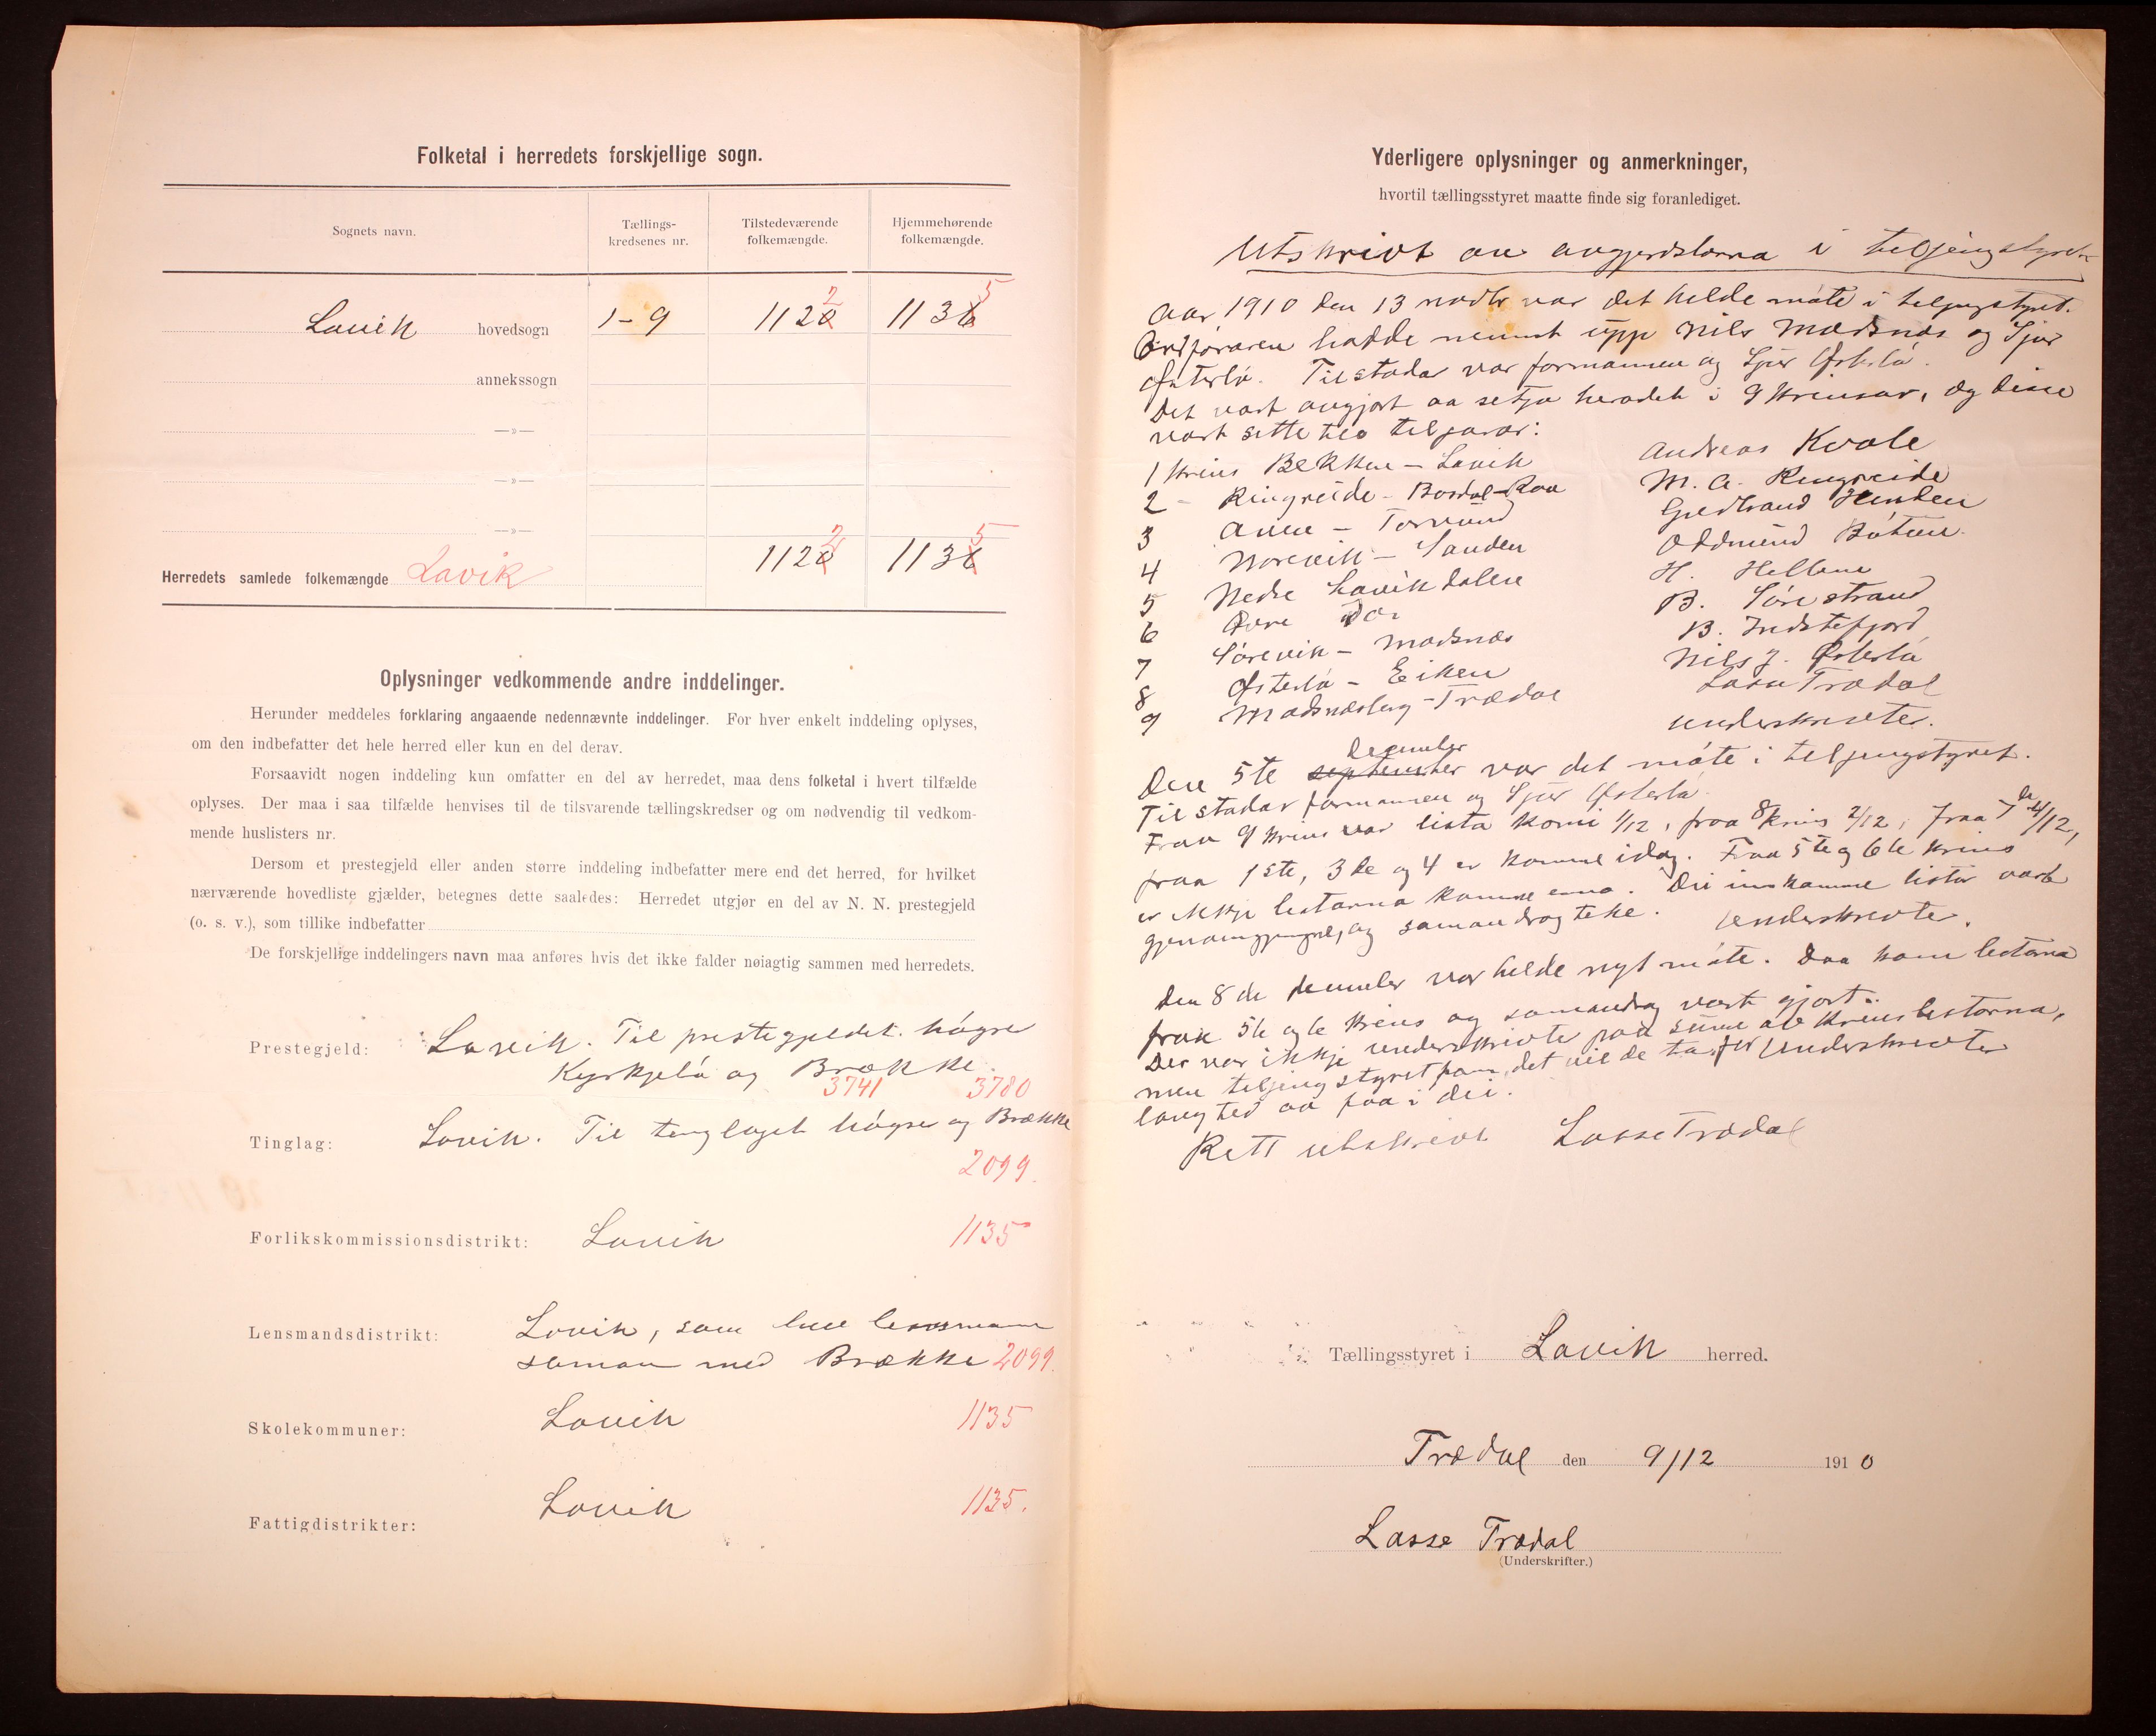 Folketal i herredets forskjellige sogn.
Sognets navn. Tællings-kredsenes nr. Tilstedeværende folkemængde. Hjemmehørende folkemængde.
Lavik hovedsogn 1-9 1120 2 1136 5
annekssogn
—»—
—»—
—»—
Herredets samlede folkemængde Lavik 1120 2 1136 5
Oplysninger vedkommende andre inddelinger.
Herunder meddeles forklaring angaaende nedennævnte inddelinger. For hver enkelt inddeling oplyses,
om den indbefatter det hele herred eller kun en del derav.
Forsaavidt nogen inddeling kun omfatter en del av herredet, maa dens folketal i hvert tilfælde
oplyses. Der maa i saa tilfælde henvises til de tilsvarende tællingskredser og om nødvendig til vedkom-
mende huslisters nr.
Dersom et prestegjeld eller anden større inddeling indbefatter mere end det herred, for hvilket
nærværende hovedliste gjælder, betegnes dette saaledes: Herredet utgjør en del av N. N. prestegjeld
(o. s. v.), som tillike indbefatter
De forskjellige inddelingers navn maa anføres hvis det ikke falder nøiagtig sammen med herredets.
Prestegjeld: Lavik. Til prestegjeldet högre
Kyrkjebö og Brække.
3741 3780
Tinglag: Lavik. Til tinglaget högre og Brække
2099.
Forlikskommissionsdistrikt: Lavik 1135
Lensmandsdistrikt: Lavik, som hev lensmann
saman med Brække 2099.
Skolekommuner: Lavik 1135
Fattigdistrikter: Lavik 1135.
Yderligere oplysninger og anmerkninger,
hvortil tællingsstyret maatte finde sig foranlediget.
Utskrivt av avgjerdslorna i teljingstyret
Aar 1910 den 13 novbr var det helde möte i teljingstyret.
Ordföraren hadde nemnt upp Nils Madsnæs og Sjur
Østerbö. Tilstadar var formannen og Sjur Østerbö.
Det vart avgjort aa setja heradet i 9 krinsar, og disse
vart sette til teljarar:
1 krins Bekken - Lavik Andreas Kvale
2 - Ringreide - Bordal - Raa M. A. Ringreide
3 Avem - Torvund Gjertrand
4 Norevik - Sanden Oddmund Böteen.
5 Nedre Lavikdalen H. Hellene
6 Övre Do. B. Sörestrand
7 Sörevik - Madsnæs B. Indstefjord
8 Østerbö - Eiken Nils J. Österbö
9 Madsnæsberg - Trædal Lasse Trædal
Underskrivte.
December
Den 5te september var det möte i teljingstyret.
Tilstadar formannen og Sjur Østerbö.
Fraa 9 krins var lista komi 1/12, fraa 8 krins 2/12, fraa 7de 4/12,
fraa 1ste, 3de og 4 er komne idag. Fraa 5te og 6te krins
er ikkje listorna komne enno. Dei innkomne listor vart
gjenomgjengne, og samandrag teke. Underskrivte.
Den 8de december var helde nyt möte. Daa kom listorna
fraa 5te og 6te krins og samandrag vart gjort.
Der var ikkje underskrivte paa sume av krinslistorna,
men teljingstyret fann, det vil de ta for
lang tid aa faa i dei. Underskrivte
Rett utskrivt Lasse Trædal
Tællingsstyret i Lavik herred.
Trædal den 9/12 1910
Lasse Trædal
(Underskrifter.)